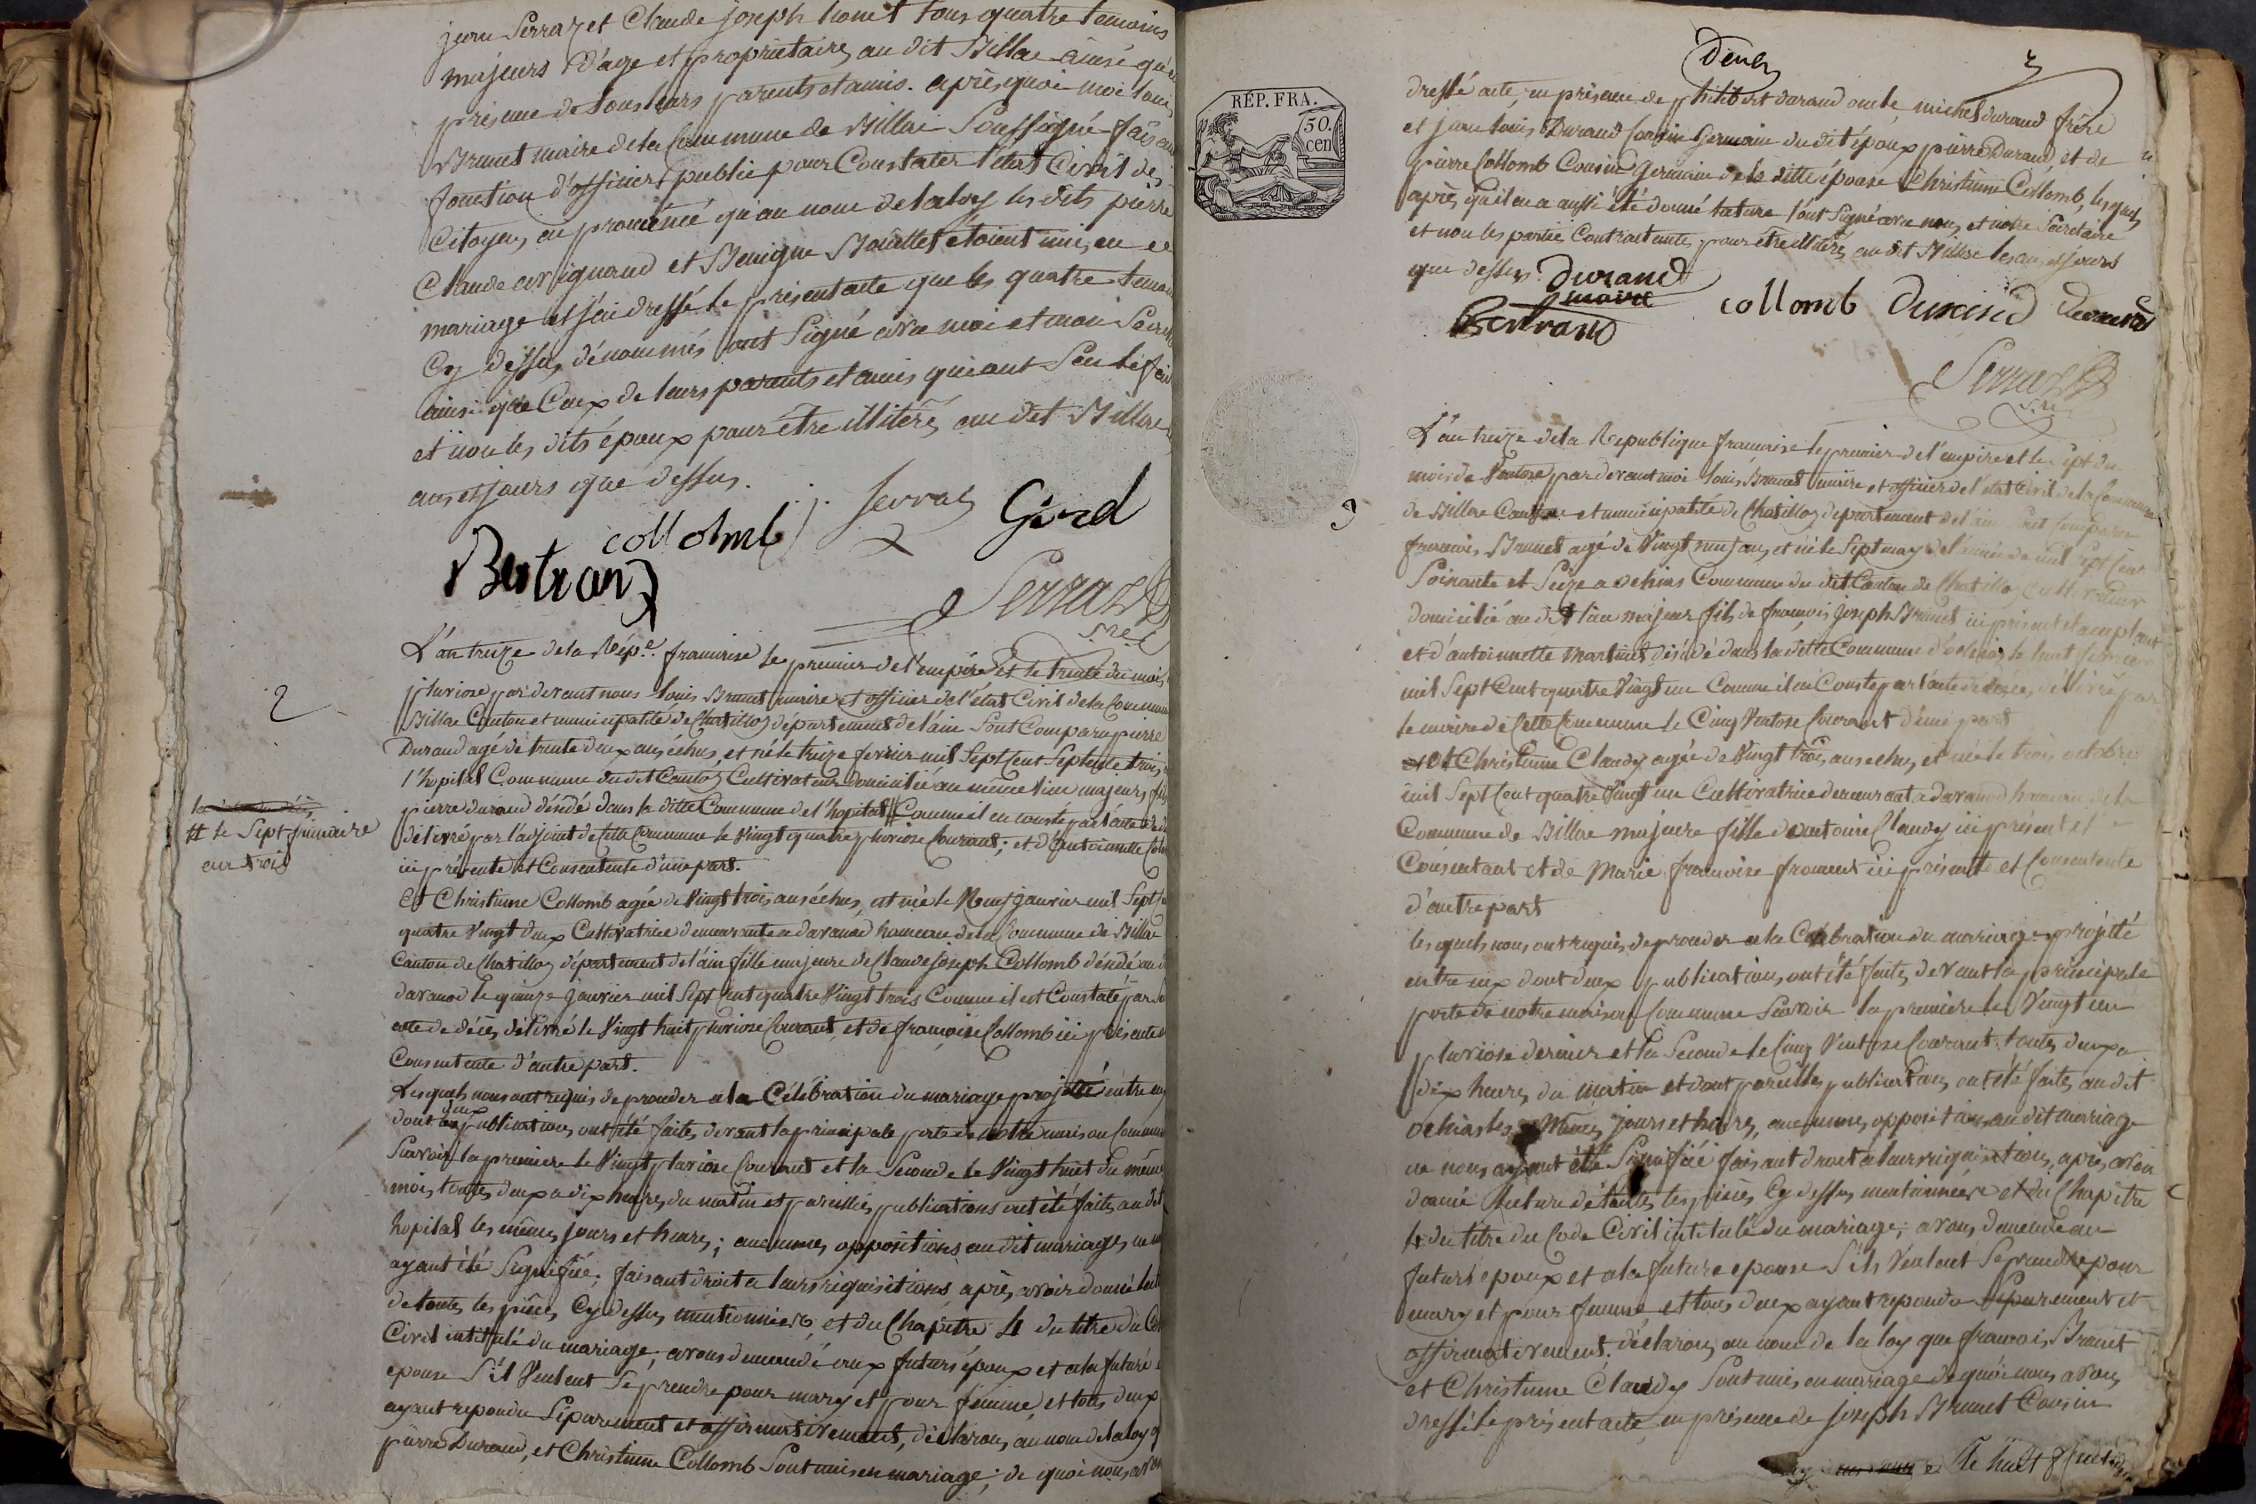 jean Serraz et Claude joseph humet tous quatre temoins
majeurs d'age et proprietaires au dit Billac ainsi qu'en
présence de tous leurs parents et amis. après quoi moi Louis
Brunet maire de la Commune de Billac Soussigné faisant
fonction d'officier public pour Constater l'état Civil des
Citoyens, ai prononcé qu'au nom de la loy les dits pierre
Claude et Benigne Bouillet étoient unis, en
mariage et j'ai dressé le présent acte que les quatre temoins
Cy dessus dénommés ont Signé avec moi et mon Secretaire
ainsi que Ceux de leurs parents et amis qui ont Seu le faire
et non les dits époux pour être illitéré, au dit Billac
ans et jours que dessus.
collomb j. Serraz Gird
Bertrand
Serraz
Sre
2
L'an treize de la Répe. francaise le premier de l'empire et le trente du mois
pluviose par devant nous Louis Brunet maire et officier de l'état Civil de la Commune
Billac Canton et municipalité de Chatillon département de l'ain Sont Comparu pierre
Durand agé de trente deux ans échus, et né le treize fevrier mil Sept Cent Septente trois
l'hopital Commune du dit Canton Cultivateur Domicilié au même lieu majeur, fils
pierre durand décédé dans la ditte Commune de l'hopital # Comme il en conste par l'acte de
délivré par l'adjoint de cette Commune le Vingt quatre pluviose Courant; et d'antoinette
ici présente et Consentente d'une part.
# le Sept frimaire
an trois
Et Christinne Collomb agée de Vingt trois ans échus, et née le Neuf janvier mil Sept
quatre Vingt deux Cultivatrice demeurante a davanod hameau de la Commune de Billac
Canton de Chatillon département de l'ain fille majeure de Claude Joseph Collomb décédé au
davanod le quinze janvier mil Sept Cent quatre Vingt trois Comme il est Constaté par
acte de décès délivré le Vingt huit pluviose Courant, et de francoise Collomb ici présente
Consentente d'autre part.
Lesquels nous ont requis de proceder a la Célébration du mariage projetté entre eux
dont deux publications ont été faites devant la principale porte de notre maison Commune
Savoir la premiere le Vingt pluviose Courant et la Seconde le Vingt huit du même
mois, toutes deux a dix heures du matin et pareilles publications ont été faites au dit
hopital les mêmes jours et heures; aucunnes oppositions au dit mariage ne
ayant été Signifiée, faisant droit a leurs requisitions après avoir donné
de toutes les pièces Cy dessus mentionnées, et du Chapitre 4 du titre du Code
Civil intitulé du mariage, avons demandé aux futurs époux et a la future
epouse S'il Veulent Se prendre pour mary et pour femme, et tous deux
ayant repondu Séparement et affirmativement, déclarons au nom de la loy
pierre Durand, et Christinne Collomb Sont unis en mariage; de quoi nous avons
RÉP. FRA.
50.
cen
deux
dressé acte, en présence de philibert durand oncle, michel durand frère
et jean Louis Durand Cousin Germain du dit époux pierre Durand, et de
pierre Collomb Cousin Germain de la ditte épouse Christinne Collomb, lesquels
après qu'il en a aussi été donné lecture l'ont Signé avec nous, et notre Secretaire
et non les parties Contractantes pour être illitéré, au dit Billac les ans et jours
que dessus. Durand
maire
Bertrand
collomb Durand durand
Serraz
Sre
3
L'an treize de la Republique francaise le premier de l'empire et le sept du
mois de Ventose par devant moi Louis Brunet maire et officier de l'état Civil de la Commune
de Billac Canton et municipalité de Chatillon département de l'ain Sont Comparu
francois Brunet agé de Vingt neuf ans, et né le Sept may de l'année mil Sept Cent
Soixante et Seize a ochias Commune du dit Canton de Chatillon Cultivateur
domicilié au dit lieu majeur fils de francois Joseph Brunet ici présent et acceptant
et d'antoinnette Martinet décédé dans la ditte Commune d'ochias le huit fevrier
mil Sept Cent quatre Vingt un Comme il en Conste par l'acte de décès, délivré par
le maire de Cette Commune le Cinq Ventose Courant d'une part
et Christinne Claudy agée de Vingt trois ans échus, et née le trois octobre
mil Sept Cent quatre Vingt un Cultivatrice demeurante a davanod hameau de la
Commune de Billac majeure fille d'antoine Claudy ici présent et
Consentant et de Marie francoise froment ici présente et Consentente
d'autre part
lesquels nous ont requis de proceder a la Célébration du mariage projetté
entre eux dont deux publications ont été faites devant la principale
porte de notre maison Commune Savoir la première le Vingt un
pluviose dernier et la Seconde le Cinq Ventose Courant toutes deux a
dix heures du matin et dont pareilles publications ont été faites au dit
ochias les Mêmes jours et heures, aucunnes oppositions au dit mariage
ne nous ayant été Signifiée faisant droit a leurs requisitions, après avoir
donné lecture de toutes les pièces Cy dessus mentionnées et du Chapitre
4 du titre du Code Civil intitulé du mariage, avons demandé au
futurs epoux et a la future epouse S'ils Veulent Se prendre pour
mary et pour femme et tous deux ayant repondu Séparement et
affirmativement. déclarons au nom de la loy que francois Brunet
et Christinne Claudy Sont unis en mariage de quoi nous avons
dressé le présent acte, en présence de joseph Brunet Cousin
le huit